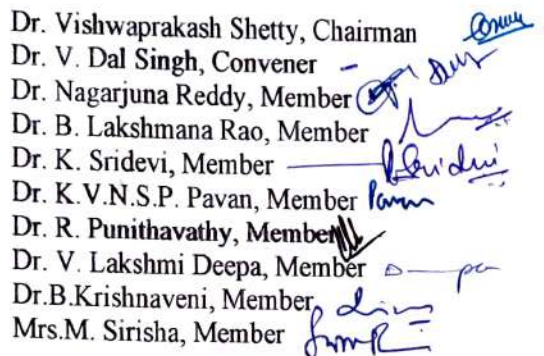 Dr. Vishwaprakash Shetty, Chairman
Dr. V. Dal Singh, Convener
Dr. Nagarjuna Reddy, Member
Dr. B. Lakshmana Rao, Member
Dr. K. Sridevi, Member
Dr. K.V.N.S.P. Pavan, Member Pavan
Dr. R. Punithavathy, Member
Dr. V. Lakshmi Deepa, Member
Dr.B.Krishnaveni, Member
Mrs.M. Sirisha, Member